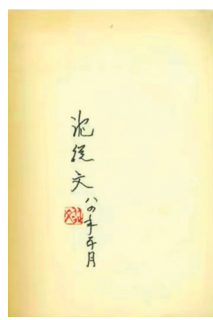 沈從文
八四年五月